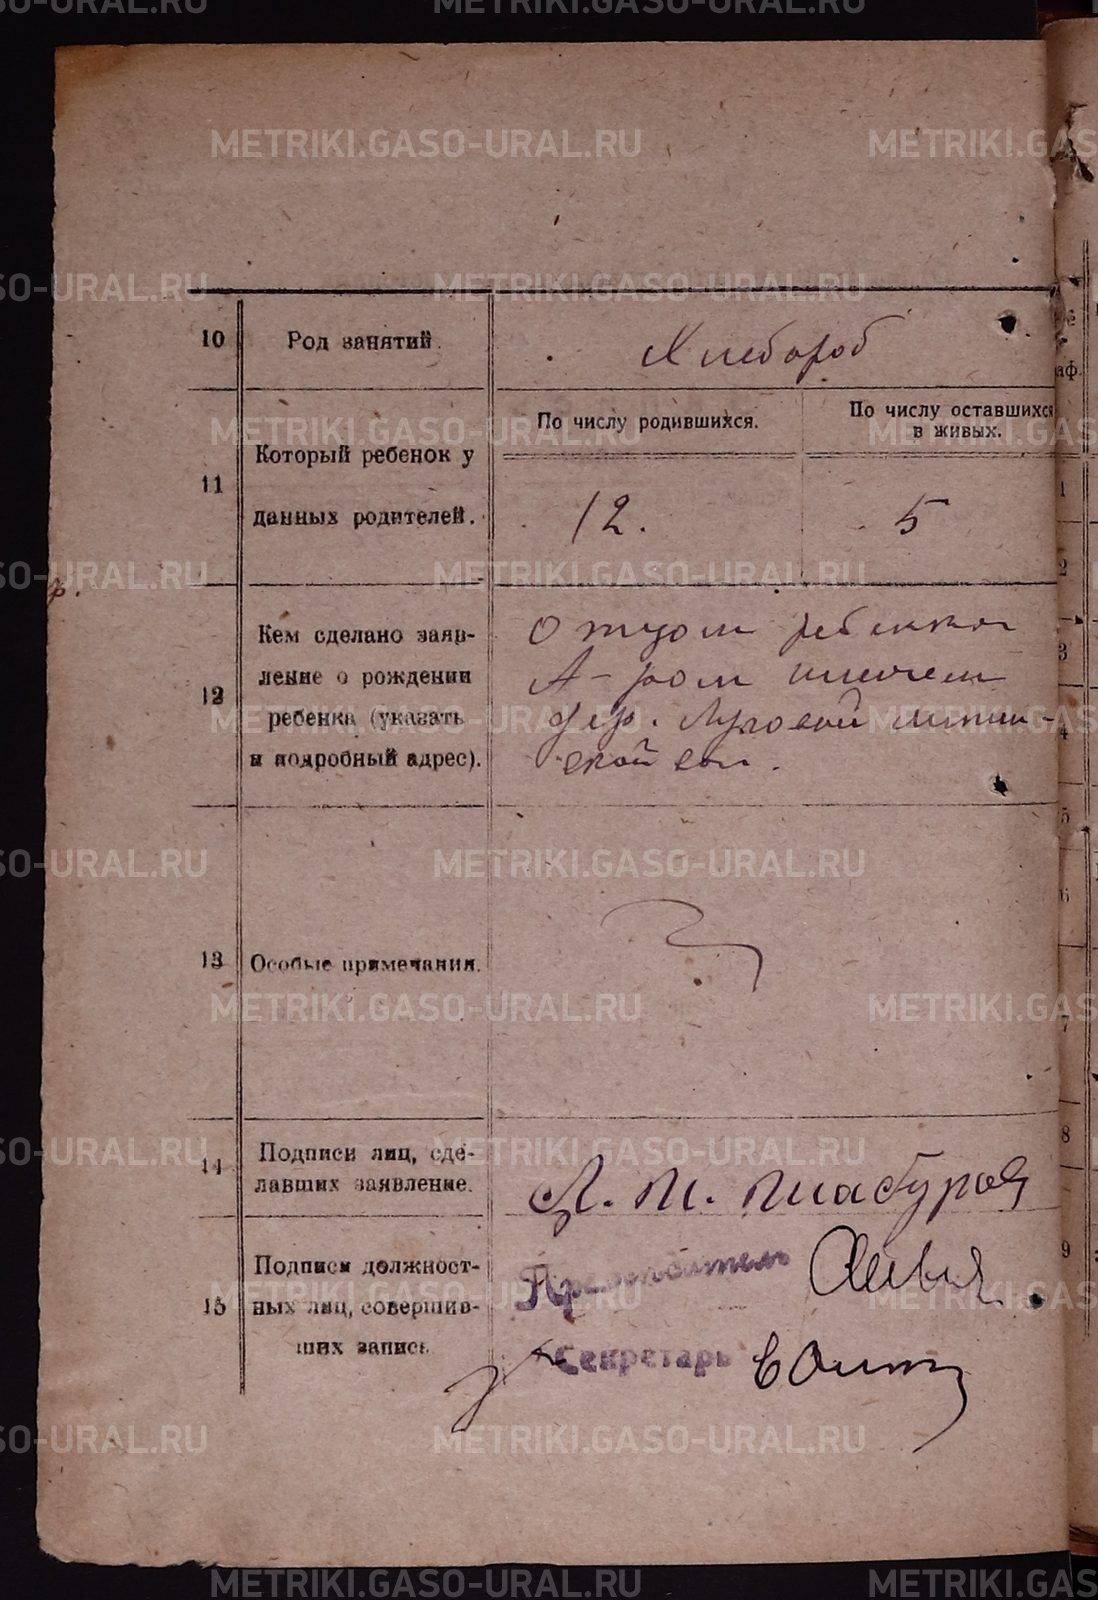 10 Род занятий. Хлебороб
11 Который ребенок у данных родителей.
По числу родившихся.
По числу оставшихся в живых.
12.
5
12 Кем сделано заяв-
ление о рождении
ребенка (указать
и подробный адрес).
Отцом ребенка
дер. Луговой
ской вол.
13 Особые примечания.
14 Подписи лиц, сде-
лавших заявление.
15 Подписи должност-
ных лиц, совершив-
ших запись
Председатель
Секретарь
аф.
1
2
3
4
5
6
7
8
9
METRIKI.GASO-URAL.RU